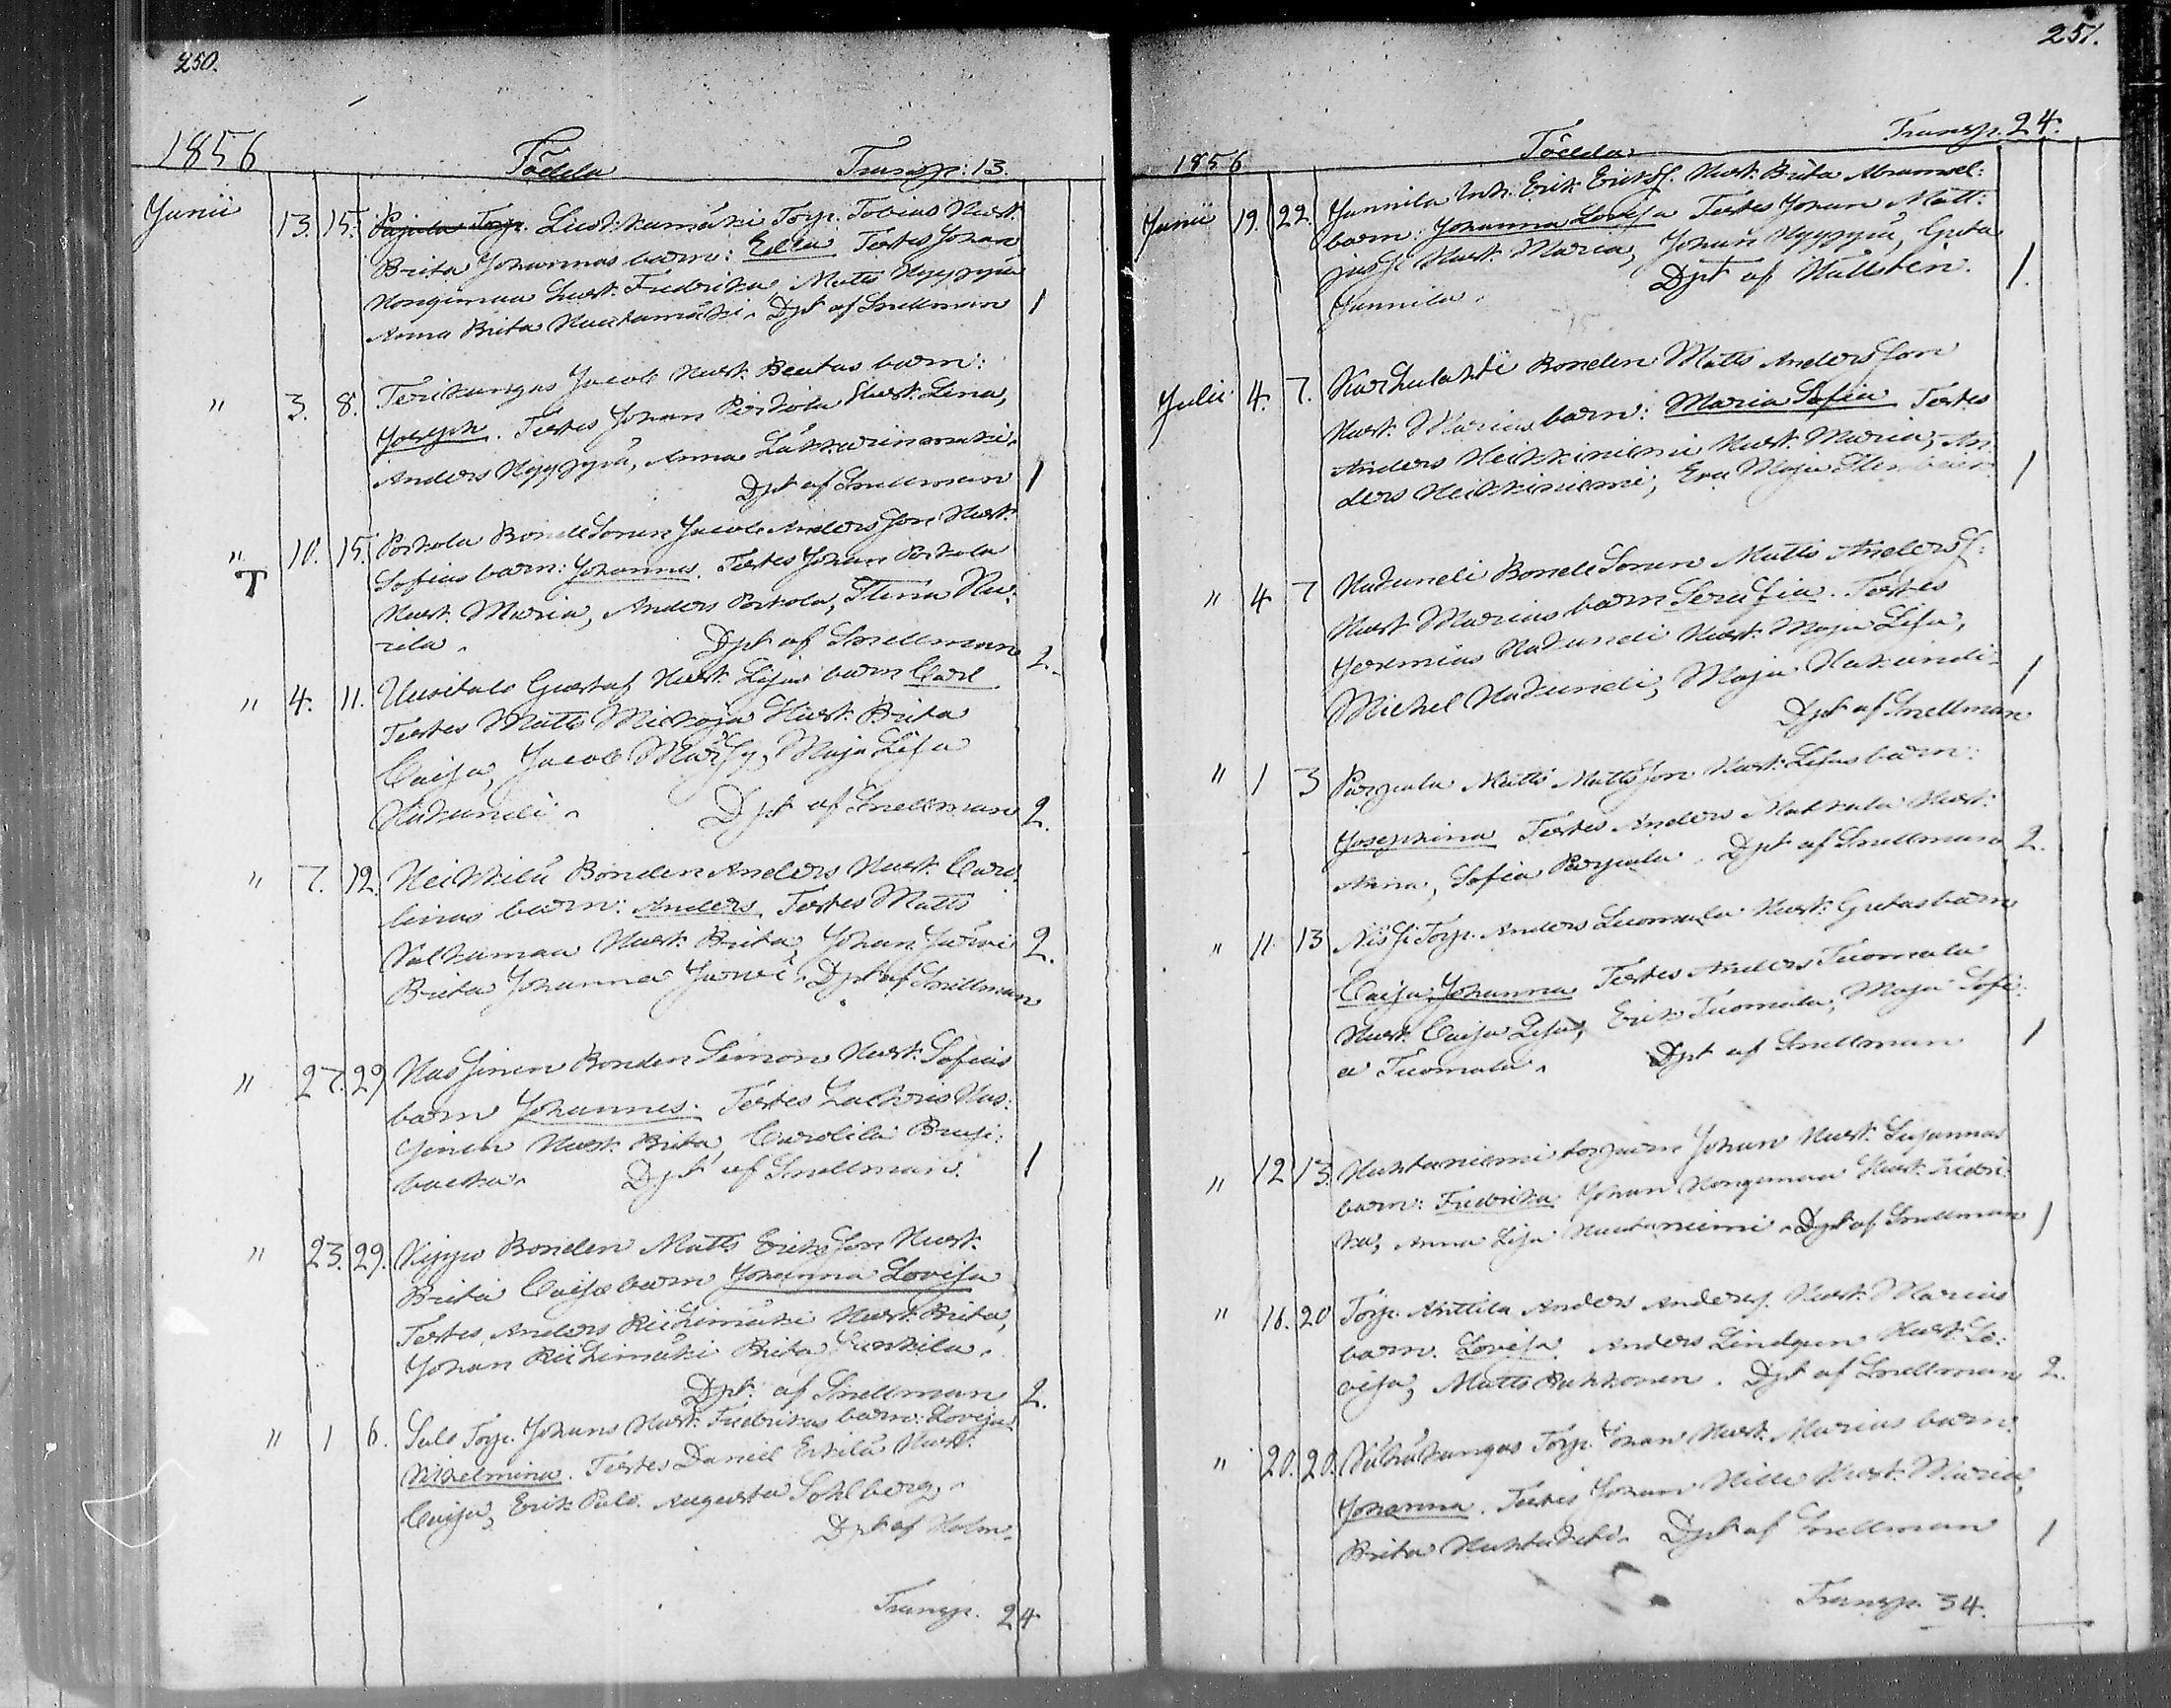 250.
1856 Födda Transp: 13.
Junii 13. 15. Pajula Torp. Torp. Tobias Hust.
Brita Johannas barn: Edla Testes Johan
Hongimaa Hust. Fredrika, Matts Nyypyä
Anna Brita Dpt af Snellman 1
" 3. 8. Terikangas Jacob Hust. Beatas barn:
Joseph. Testes Johan Portola Hust. Lena,
Anders Nyypyä, Anna
Dpt af Snellman 1
" T 10. 15. Portola BondeSonen Jacob AndersSon Hust.
Sofias barn: Johannes. Testes Johan Portola
Hust. Maria, Anders Portola, Stina
rila. Dpt af Snellman 2.
" 4. 11. Uusitalo Gustaf Hust. Lisas barn Carl
Testes Matts Hust. Brita
Caisa, Jacob Maja Lisa
Hakundi. Dpt af Snellman 2.
" 7. 12. Heikkilä Bonden Anders Hust. Caro
linas barn: Anders. Testes Matts
Valkamaa Hust. Brita, Johan Järvi 2.
Brita Johanna Järvi. Dpt af Snellman
" 27. 29. Hassinen Bonden Simon Hust. Sofias
barn Johannes. Testes Zachris Has:
sinen Hust. Brita, Carolila
backa. Dpt af Snellman. 1
" 23. 29. Bonden Matts EriksSon Hust.
Brita Caisas barn Johanna Lovisa
Testes, Anders Riihimäki Hust. Brita,
Johan Riihimäki Brita
Dpt. af Snellman 2.
" 1 6. Salo Torp. Johans Hust. Fredrikas barn: Lovisa
Vilhelmina. Testes Daniel Erkilä Hust.
Caisa, Erik Palo. Augusta Sohlberg.
Dpt af Holm.
Transp. 24
251.
1856 Födda Transp. 24.
Junii 19. 22. Junnila Erik Hust. Brita
barn: Johanna Lovisa Testes Johan Matt:
Hust. Maria, Johan Nyypyä, Greta
Junnila. Dpt af Hallstén. 1.
Julii 4. 7. Karhulahti Bonden Matts AndersSon
Hust. Marias barn: Maria Sofia Testes
Anders Heikkiniemi Hust. Maria, An
ders Heikkiniemi, Eva Maja 1
" 4 7 Hakundi BondeSonen Matts
Hust Marias barn Serafia. Testes
Jeremias Hakundi Hust. Maja Lisa,
Michel Hakundi, Maja Hakundi. 1
Dpt af Snellman
" 1 3 Parpala Matts MattsSon Hust. Lisas barn:
Josephina Testes Anders Hust.
Anna, Sofia Parpala. Dpt af Snellman 2.
" 11 13 Torp. Anders Luomala Hust. Gretas barn
Caisa Johanna Testes Anders Tuomala
Hust. Caisa Lisa, Erik Tuomala, Maja Sofi
a Tuomala. Dpt af Snellman 1
" 12 13. Huhtaniemi torparn Johan Hust. Susannas
barn: Fredrika Johan Hongimaa Hust. Fredri:
ka, Anna Lisa Huhtaniemi. Dpt af Snellman 1
" 16. 20 Torp. Anttila Anders Hust. Marias
barn. Lovisa. Anders Lindgren Hust. Lo:
visa, Matts Dpt af Snellman 2.
" 20. 20. Torp. Johan Hust. Marias barn:
Johanna. Testes Johan Hille Hust. Maria,
Brita Dpt af Snellman 1
Transp. 34.